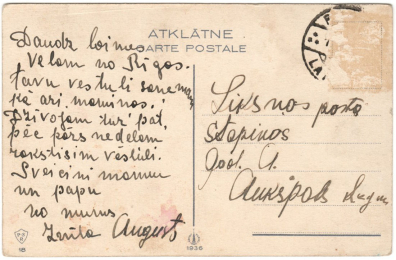 ATKLĀTNE
CARTE POSTALE
Daudz laimes
Vēlam no Rīgas.
tavu vēstuli saņēmām
kā arī maminas.
Dzīvojam tur pat,
pēc pārs nedēļām
rakstīsim vēstuli.
Sveicini mammu
un papu
no mums
Zenta August
Līksnas pastā
Stapinos
Godl. A.
Aukšpols
18
1936